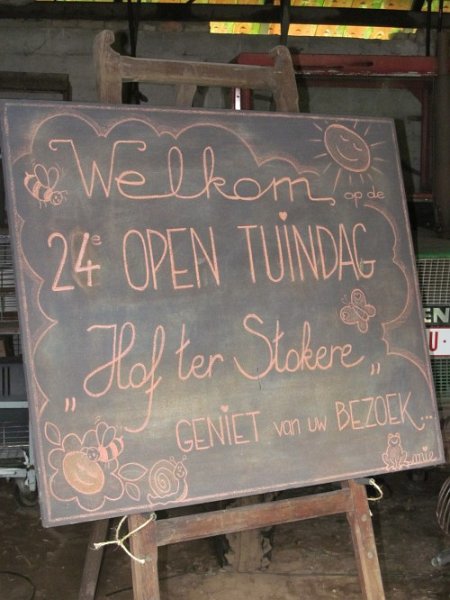 Welkom op de
24e OPEN TUINDAG
„Hof ter Stokere„
GENIET van uw BEZOEK...
mie
EN
U